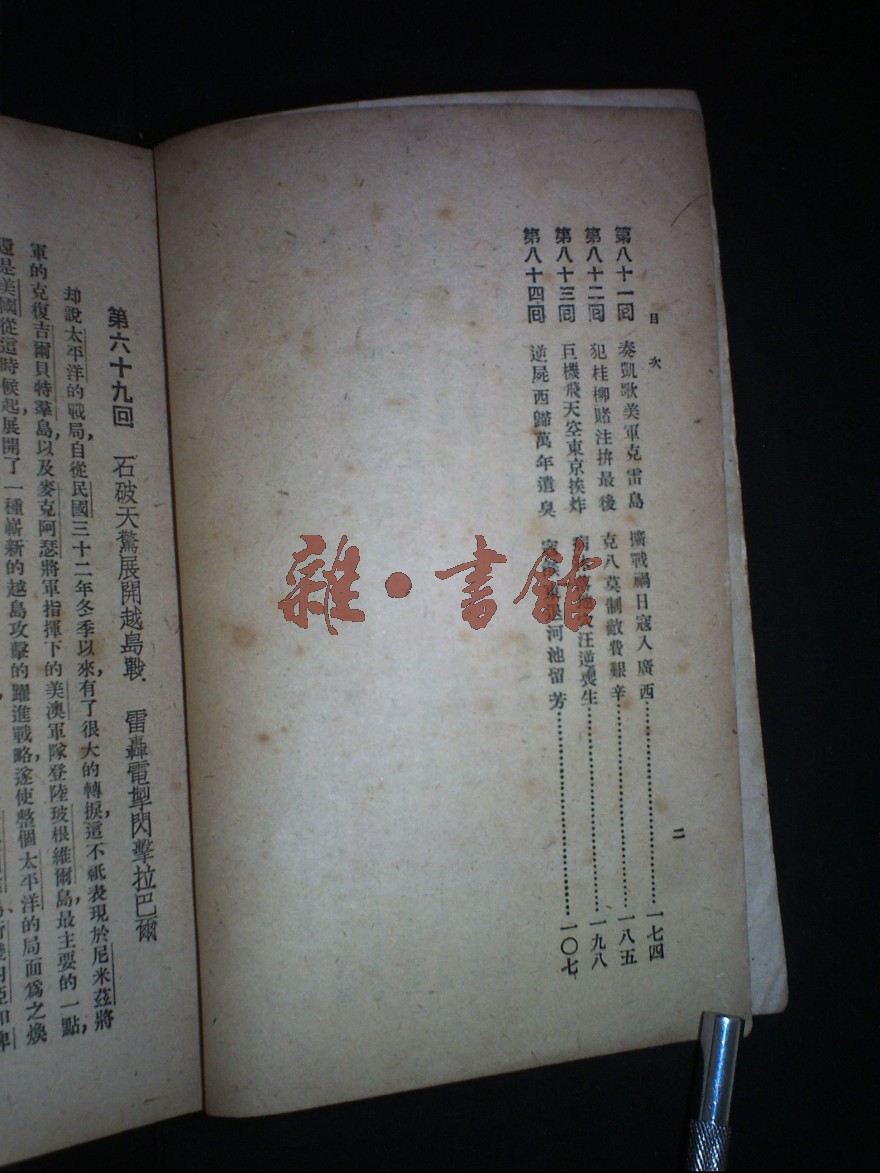 目次
第八十一囘 奏凱歌美軍克雷島 擴戰禍日寇入廣西 一七四
第八十二囘 犯桂柳賭注拚最後 克八莫制敵費艱辛 一八五
第八十三囘 巨機飛天空東京挨炸 汪逆喪生 一九八
第八十四囘 逆屍西歸萬年遺臭 河池留芳 一〇七
二
雜·書館
第六十九回 石破天驚展開越島戰, 雷轟電掣閃擊拉巴爾
却說太平洋的戰局,自從民國三十二年冬季以來,有了很大的轉捩,這不祇表現於尼米茲將
軍的克復吉爾貝特羣島,以及麥克阿瑟將軍指揮下的美澳軍隊登陸玻根維爾島,最主要的一點,
還是美國從這時候起,展開了一種嶄新的越島攻擊的躍進戰略,遂使整個太平洋的局面爲之煥